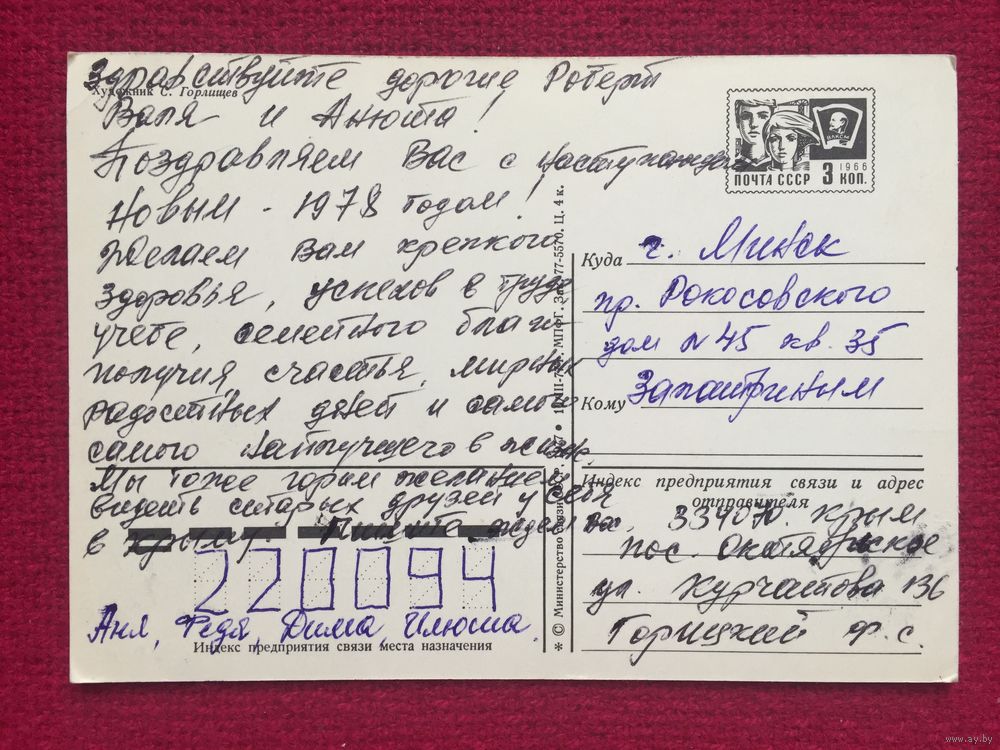 Здравствуйте дорогие Роберт
Художник С. Горлищев
Валя и Анюта!
Поздравляем Вас с наступающим
Новым - 1978 годом!
Желаем Вам крепкого
здоровья, успехов в труде
учебе, семейного благо-
получия, счастья, мирных
радостных дней и самого
самого наилучшего в жизни.
Мы тоже горим желанием
видеть старых друзей у себя
в Крыму. Пишите, ждем Вас.
220094
Аня, Федя, Дима, Илюша.
Индекс предприятия связи места назначения
© Министерство связи СССР МПФГ. 77-5570. Ц. 4 к.
ВЛКСМ
1966
ПОЧТА СССР 3 КОП.
Куда г. Минск
пр. Рокосовского
дом N 45 кв. 35
Кому Запатриным
Индекс предприятия связи и адрес
отправителя
334070. Крым
пос. Октябрьское
ул. Курчатова 136
Горицкий Ф. С.
www.ay.by